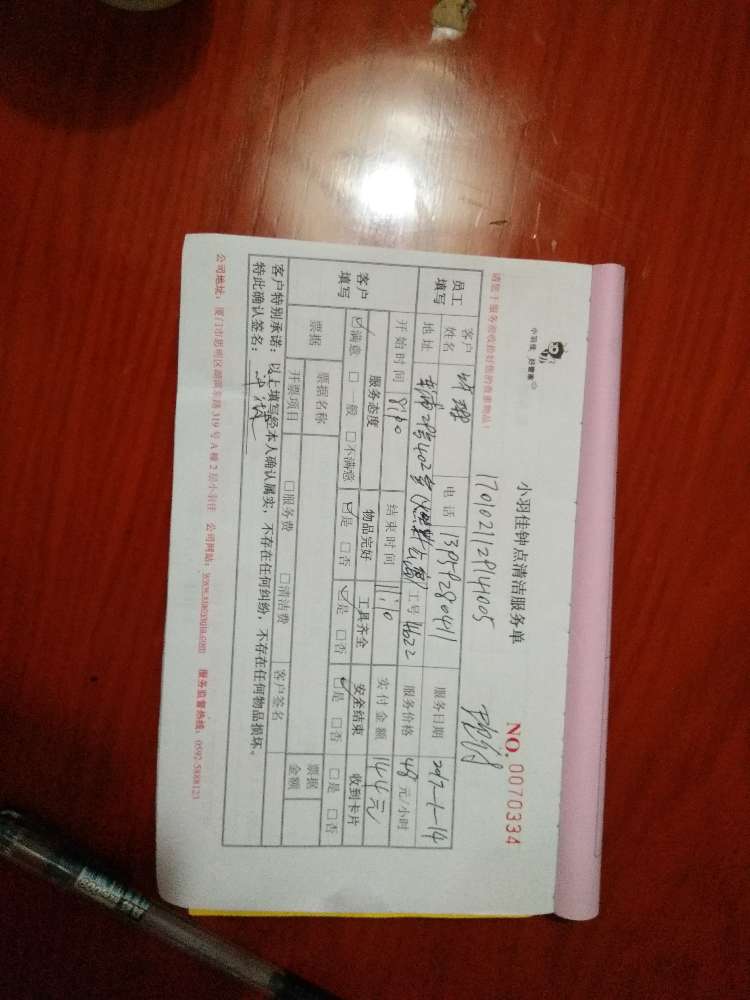 小羽佳 好管家
小羽佳钟点清洁服务单
NO. 0070334
请您于服务前收拾好您的贵重物品!
1701021129141005
员工填写
客户姓名
电话 13959280411
服务日期 2017-1-14
地址
2号402室
工号 4622
服务价格 48元/小时
开始时间 8:10
结束时间 11:10
实付金额 144元
客户填写
服务态度 物品完好 工具齐全 安全结束 收到卡片
☑满意 □一般 □不满意 ☑是 □否 ☑是 □否 ☑是 □否 □是 □否
票据 票据名称 票据金额
开票项目 □服务费 □清洁费 客户签名
客户特别承诺:以上填写经本人确认属实,不存在任何纠纷,不存在任何物品损坏。
特此确认签名:
公司地址:厦门市思明区湖滨东路319号A幢2层小羽佳 公司网站:www.xiaoyujia.com 服务监督热线:0592-5888123